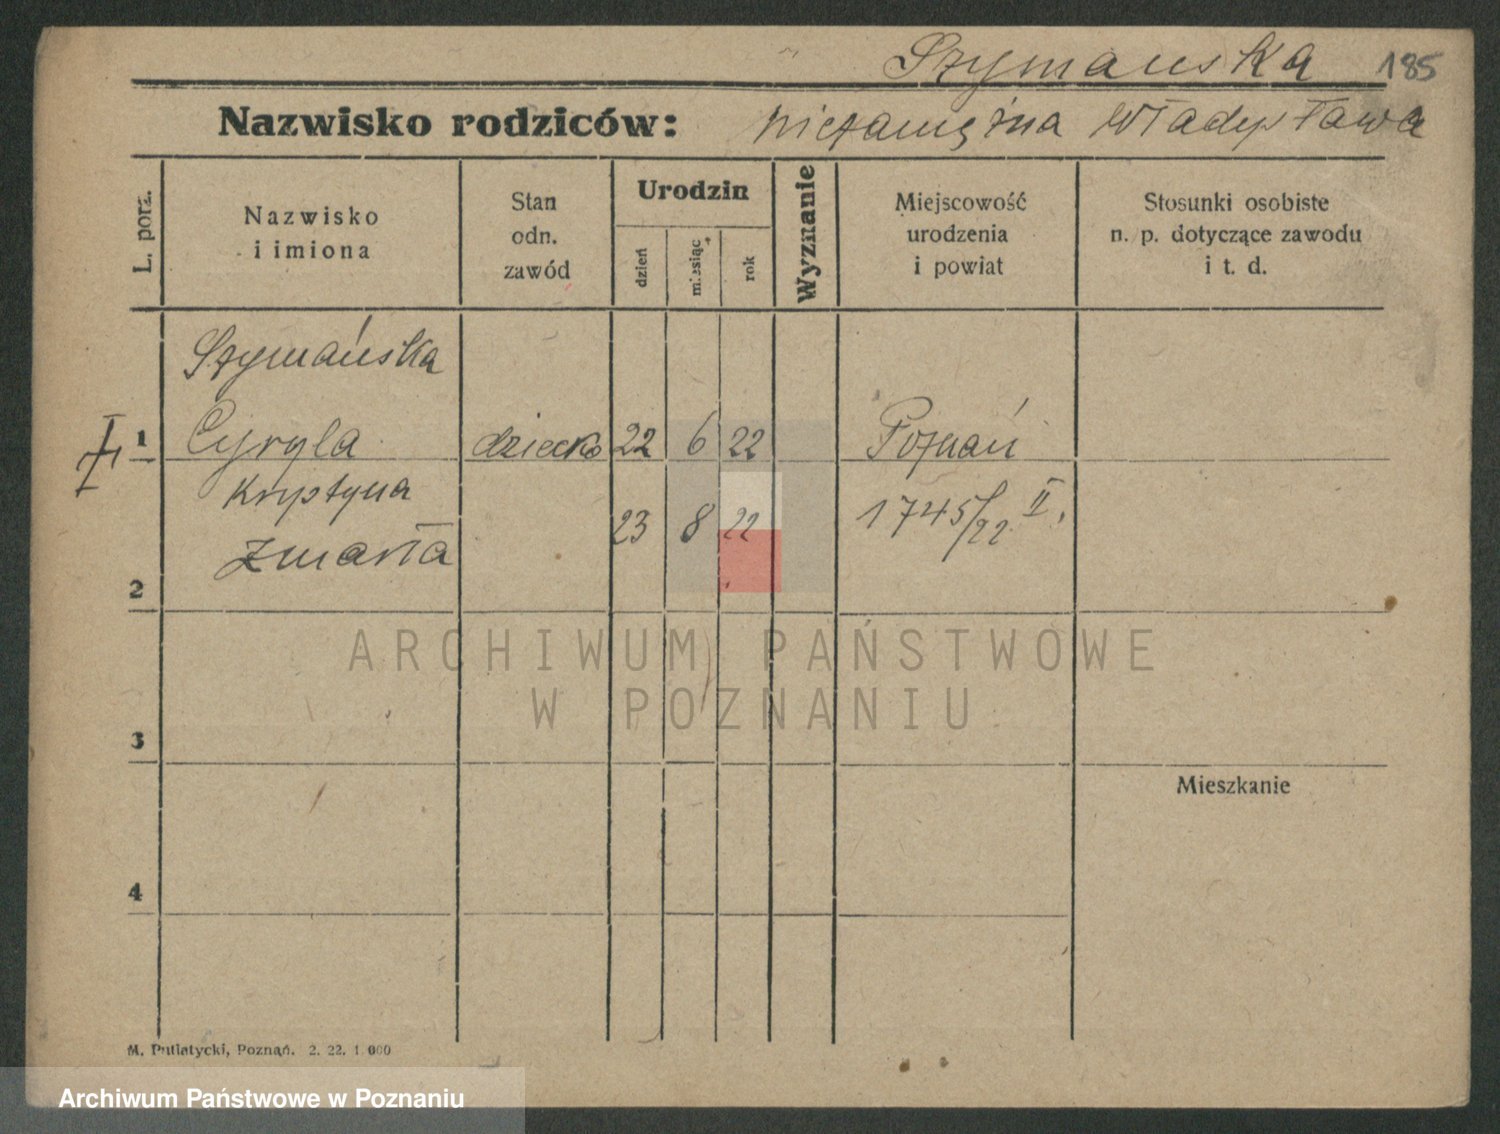 Szymańska 185
Nazwisko rodziców: niezamężna Władysława
L. porz.
Nazwisko
i imiona
Stan
odn.
zawód
Urodzin
dzień
miesiąc
rok
Wyznanie
Miejscowość
urodzenia
i powiat
Stosunki osobiste
n. p. dotyczące zawodu
i t. d.
Szymańska
1 Cyryla dziecko 22 6 22 Poznań
Krystyna
23 8 22 1745/22 II.
zmarła
2
ARCHIWUM PAŃSTWOWE
W POZNANIU
3
Mieszkanie
4
M. Putiatycki, Poznań. 2. 22. 1 000
Archiwum Państwowe w Poznaniu